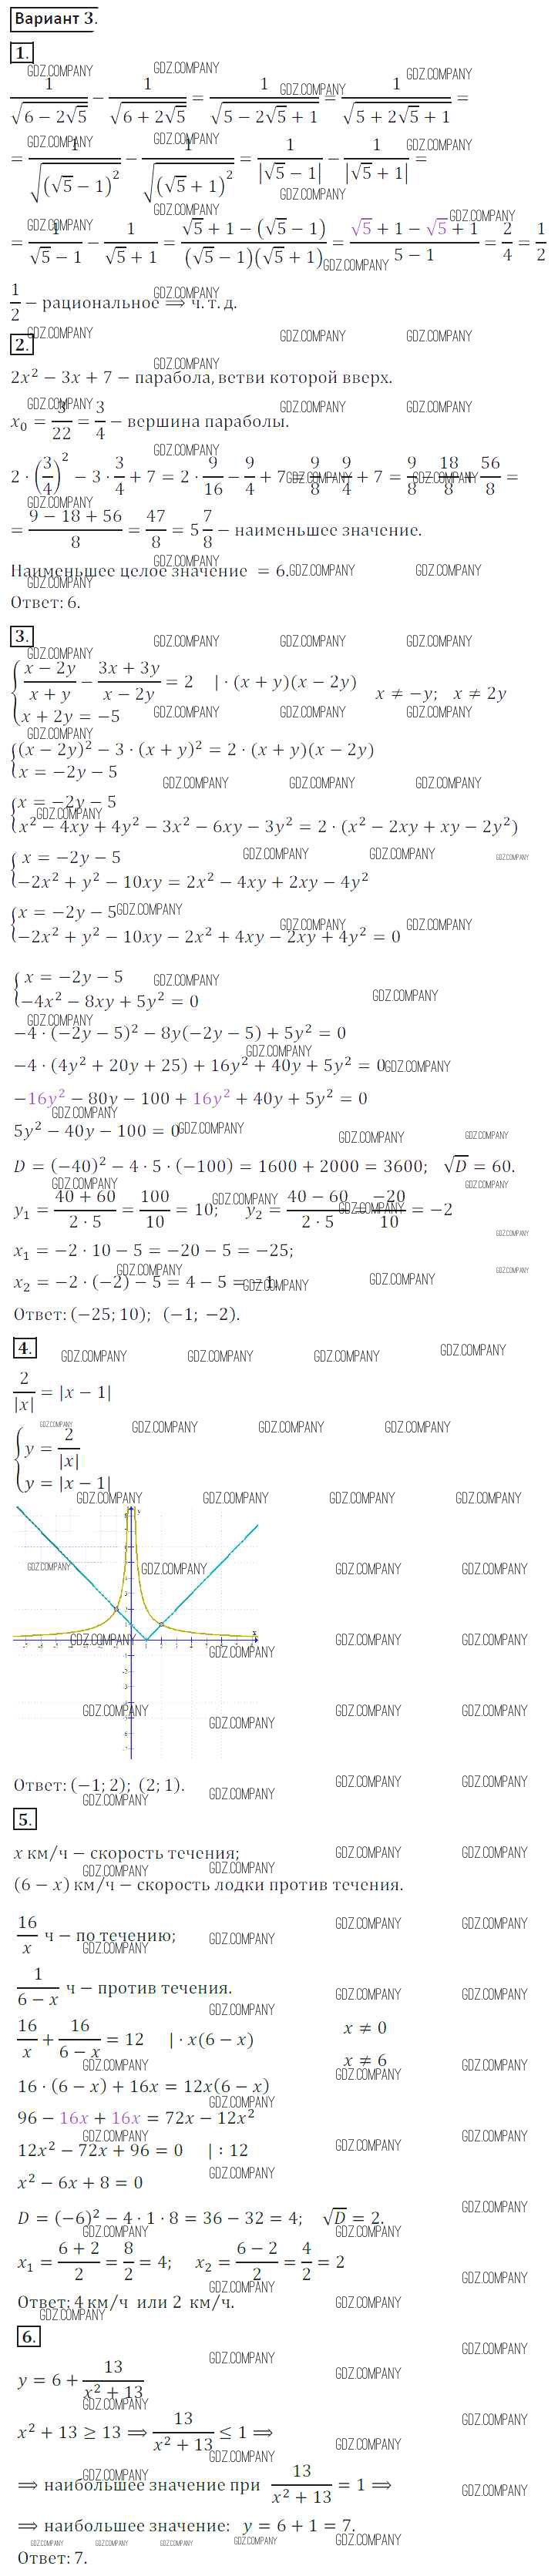 Вариант 3.
1.
1/√(6 − 2√5) − 1/√(6 + 2√5) = 1/√(5 − 2√5 + 1) = 1/√(5 + 2√5 + 1) =
= 1/√((√5 − 1)²) − 1/√((√5 + 1)²) = 1/|√5 − 1| − 1/|√5 + 1| =
= 1/(√5 − 1) − 1/(√5 + 1) = (√5 + 1 − (√5 − 1))/((√5 − 1)(√5 + 1)) = (√5 + 1 − √5 + 1)/(5 − 1) = 2/4 = 1/2
1/2 − рациональное ⟹ ч. т. д.
2.
2x² − 3x + 7 − парабола, ветви которой вверх.
x₀ = 3/22 = 3/4 − вершина параболы.
2 · (3/4)² − 3 · 3/4 + 7 = 2 · 9/16 − 9/4 + 7 = 9/8 − 9/4 + 7 = 9/8 − 18/8 + 56/8 =
= (9 − 18 + 56)/8 = 47/8 = 5 7/8 − наименьшее значение.
Наименьшее целое значение = 6.
Ответ: 6.
3.
{ (x − 2y)/(x + y) − (3x + 3y)/(x − 2y) = 2 | · (x + y)(x − 2y) x ≠ −y; x ≠ 2y
x + 2y = −5
{ (x − 2y)² − 3 · (x + y)² = 2 · (x + y)(x − 2y)
x = −2y − 5
{ x = −2y − 5
x² − 4xy + 4y² − 3x² − 6xy − 3y² = 2 · (x² − 2xy + xy − 2y²)
{ x = −2y − 5
−2x² + y² − 10xy = 2x² − 4xy + 2xy − 4y²
{ x = −2y − 5
−2x² + y² − 10xy − 2x² + 4xy − 2xy + 4y² = 0
{ x = −2y − 5
−4x² − 8xy + 5y² = 0
−4 · (−2y − 5)² − 8y(−2y − 5) + 5y² = 0
−4 · (4y² + 20y + 25) + 16y² + 40y + 5y² = 0
−16y² − 80y − 100 + 16y² + 40y + 5y² = 0
5y² − 40y − 100 = 0
D = (−40)² − 4 · 5 · (−100) = 1600 + 2000 = 3600; √D = 60.
y₁ = (40 + 60)/(2 · 5) = 100/10 = 10; y₂ = (40 − 60)/(2 · 5) = −20/10 = −2
x₁ = −2 · 10 − 5 = −20 − 5 = −25;
x₂ = −2 · (−2) − 5 = 4 − 5 = −1.
Ответ: (−25; 10); (−1; −2).
4.
2/|x| = |x − 1|
{ y = 2/|x|
y = |x − 1|
Ответ: (−1; 2); (2; 1).
5.
x км/ч − скорость течения;
(6 − x) км/ч − скорость лодки против течения.
16/x ч − по течению;
1/(6 − x) ч − против течения.
16/x + 16/(6 − x) = 12 | · x(6 − x) x ≠ 0
x ≠ 6
16 · (6 − x) + 16x = 12x(6 − x)
96 − 16x + 16x = 72x − 12x²
12x² − 72x + 96 = 0 | : 12
x² − 6x + 8 = 0
D = (−6)² − 4 · 1 · 8 = 36 − 32 = 4; √D = 2.
x₁ = (6 + 2)/2 = 8/2 = 4; x₂ = (6 − 2)/2 = 4/2 = 2
Ответ: 4 км/ч или 2 км/ч.
6.
y = 6 + 13/(x² + 13)
x² + 13 ≥ 13 ⟹ 13/(x² + 13) ≤ 1 ⟹
⟹ наибольшее значение при 13/(x² + 13) = 1 ⟹
⟹ наибольшее значение: y = 6 + 1 = 7.
Ответ: 7.
GDZ.COMPANY